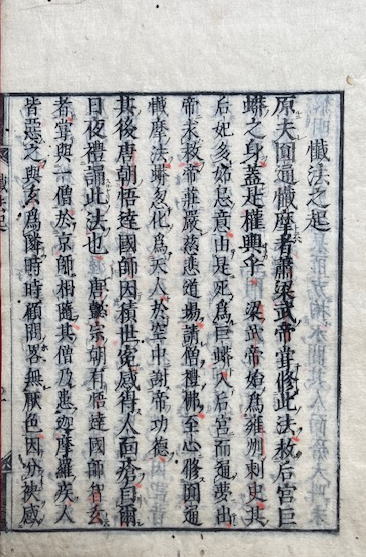 懺法之起
原夫圓通懺摩者蕭梁武帝甞修此法救后宮巨
蟒之身蓋是權輿乎 梁武帝始爲雍州刺史其
后妃多妬忌意由是死爲巨蟒入后宮而通夢出
帝求救帝莊嚴慈悲道場請僧禮佛至心修圓通
懺摩法蟒忽化爲天人於空中謝帝功德
其後唐朝悟達國師因積世寃感得人面瘡自爾
日夜禮誦此法也 唐懿宗朝有悟達國師智玄
者甞與一僧於京師相隨其僧乃患迦摩羅疾人
皆惡之與玄爲隣時時顧問畧無厭色因分袂感